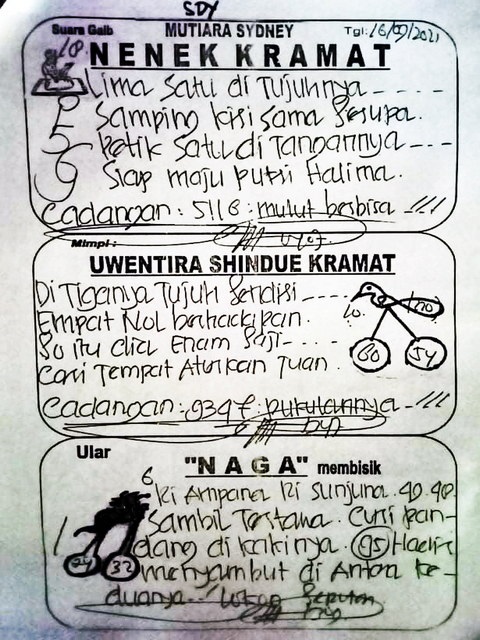 SDY
Suara Gaib MUTIARA SYDNEY Tgl: 16/09/2021
10.
NENEK KRAMAT
Lima Satu di Tujuhnya - - - -
Samping Kiri Sama Serupa.
Ketik Satu di Tangannya - - -
Siap maju Putri Halima.
Cadangan: 5118: mulut berbisa
Mimpi:
UWENTIRA SHINDUE KRAMAT
Di Tiganya Tujuh Berdiri - - - -
Empat Nol berhadapan.
So itu dia Enam Saji - - - -
Cari Tempat Aturkan Tuan.
60 54
Cadangan: 0347: pukulannya
Ular
"NAGA" membisik
6
Ki Ampana Ki Sunjuna. 40.40.
Sambil Tertawa. Curi Pan-
dang di Kakinya. 95 Hadir
menyambut di Antara Ke-
duanya
1
32